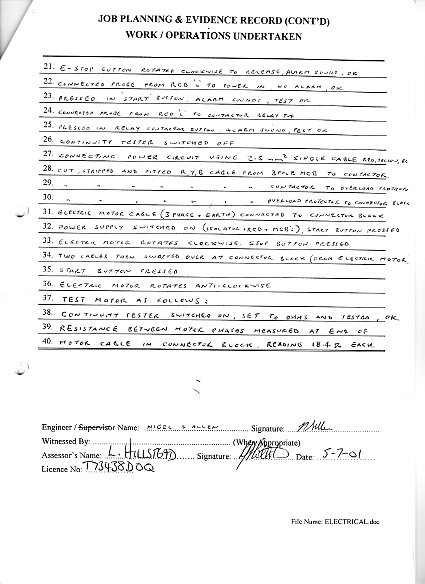 JOB PLANNING & EVIDENCE RECORD (CONT'D)
WORK / OPERATIONS UNDERTAKEN
21. E-STOP BUTTON ROTATED CLOCKWISE TO RELEASE, ALARM SOUND, OK
22. CONNECTED PROBE FROM RCD 'L' TO POWER IN NO ALARM, OK.
23. PRESSED IN 'START' BUTTON, ALARM SOUNDS, TEST OK
24. CONNECTED PROBE FROM RCD 'L' TO CONTACTOR RELAY
25. PRESSED IN RELAY CONTACTOR BUTTON, ALARM SOUND, TEST OK
26. CONTINUITY TESTER SWITCHED OFF
27. CONNECTING POWER CIRCUIT USING 2.5 mm² SINGLE CABLE RED, YELLOW,
28. CUT, STRIPPED AND FITTED R,Y,B CABLE FROM 3 POLE MCB TO CONTACTOR
29. " " " " " " CONTACTOR TO OVERLOAD PROTECTOR
30. " " " " " OVERLOAD PROTECTOR TO CONNECTOR BLOCK
31. ELECTRIC MOTOR CABLE (3 PHASE + EARTH) CONNECTED TO CONNECTOR BLOCK
32. POWER SUPPLY SWITCHED ON (ISOLATOR, RED + MCB's), START BUTTON PRESSED
33. ELECTRIC MOTOR ROTATES CLOCKWISE. STOP BUTTON PRESSED
34. TWO CABLES THEN SWAPPED OVER AT CONNECTOR BLOCK (FROM ELECTRIC MOTOR
35. START BUTTON PRESSED
36. ELECTRIC MOTOR ROTATES ANTI-CLOCKWISE
37. TEST MOTOR AS FOLLOWS:
38. CONTINUITY TESTER SWITCHED ON, SET TO OHMS AND TESTED, OK.
39. RESISTANCE BETWEEN MOTOR PHASES MEASURED AT END OF
40. MOTOR CABLE IN CONNECTOR BLOCK, READING 18.4 Ω EACH.
Engineer / Supervisor Name: NIGEL S ALLEN Signature:
Witnessed By: (Where Appropriate)
Assessor's Name: L. HILLSTEAD Signature: Date: 5-7-01
Licence No: T73438DOQ
File Name: ELECTRICAL.doc